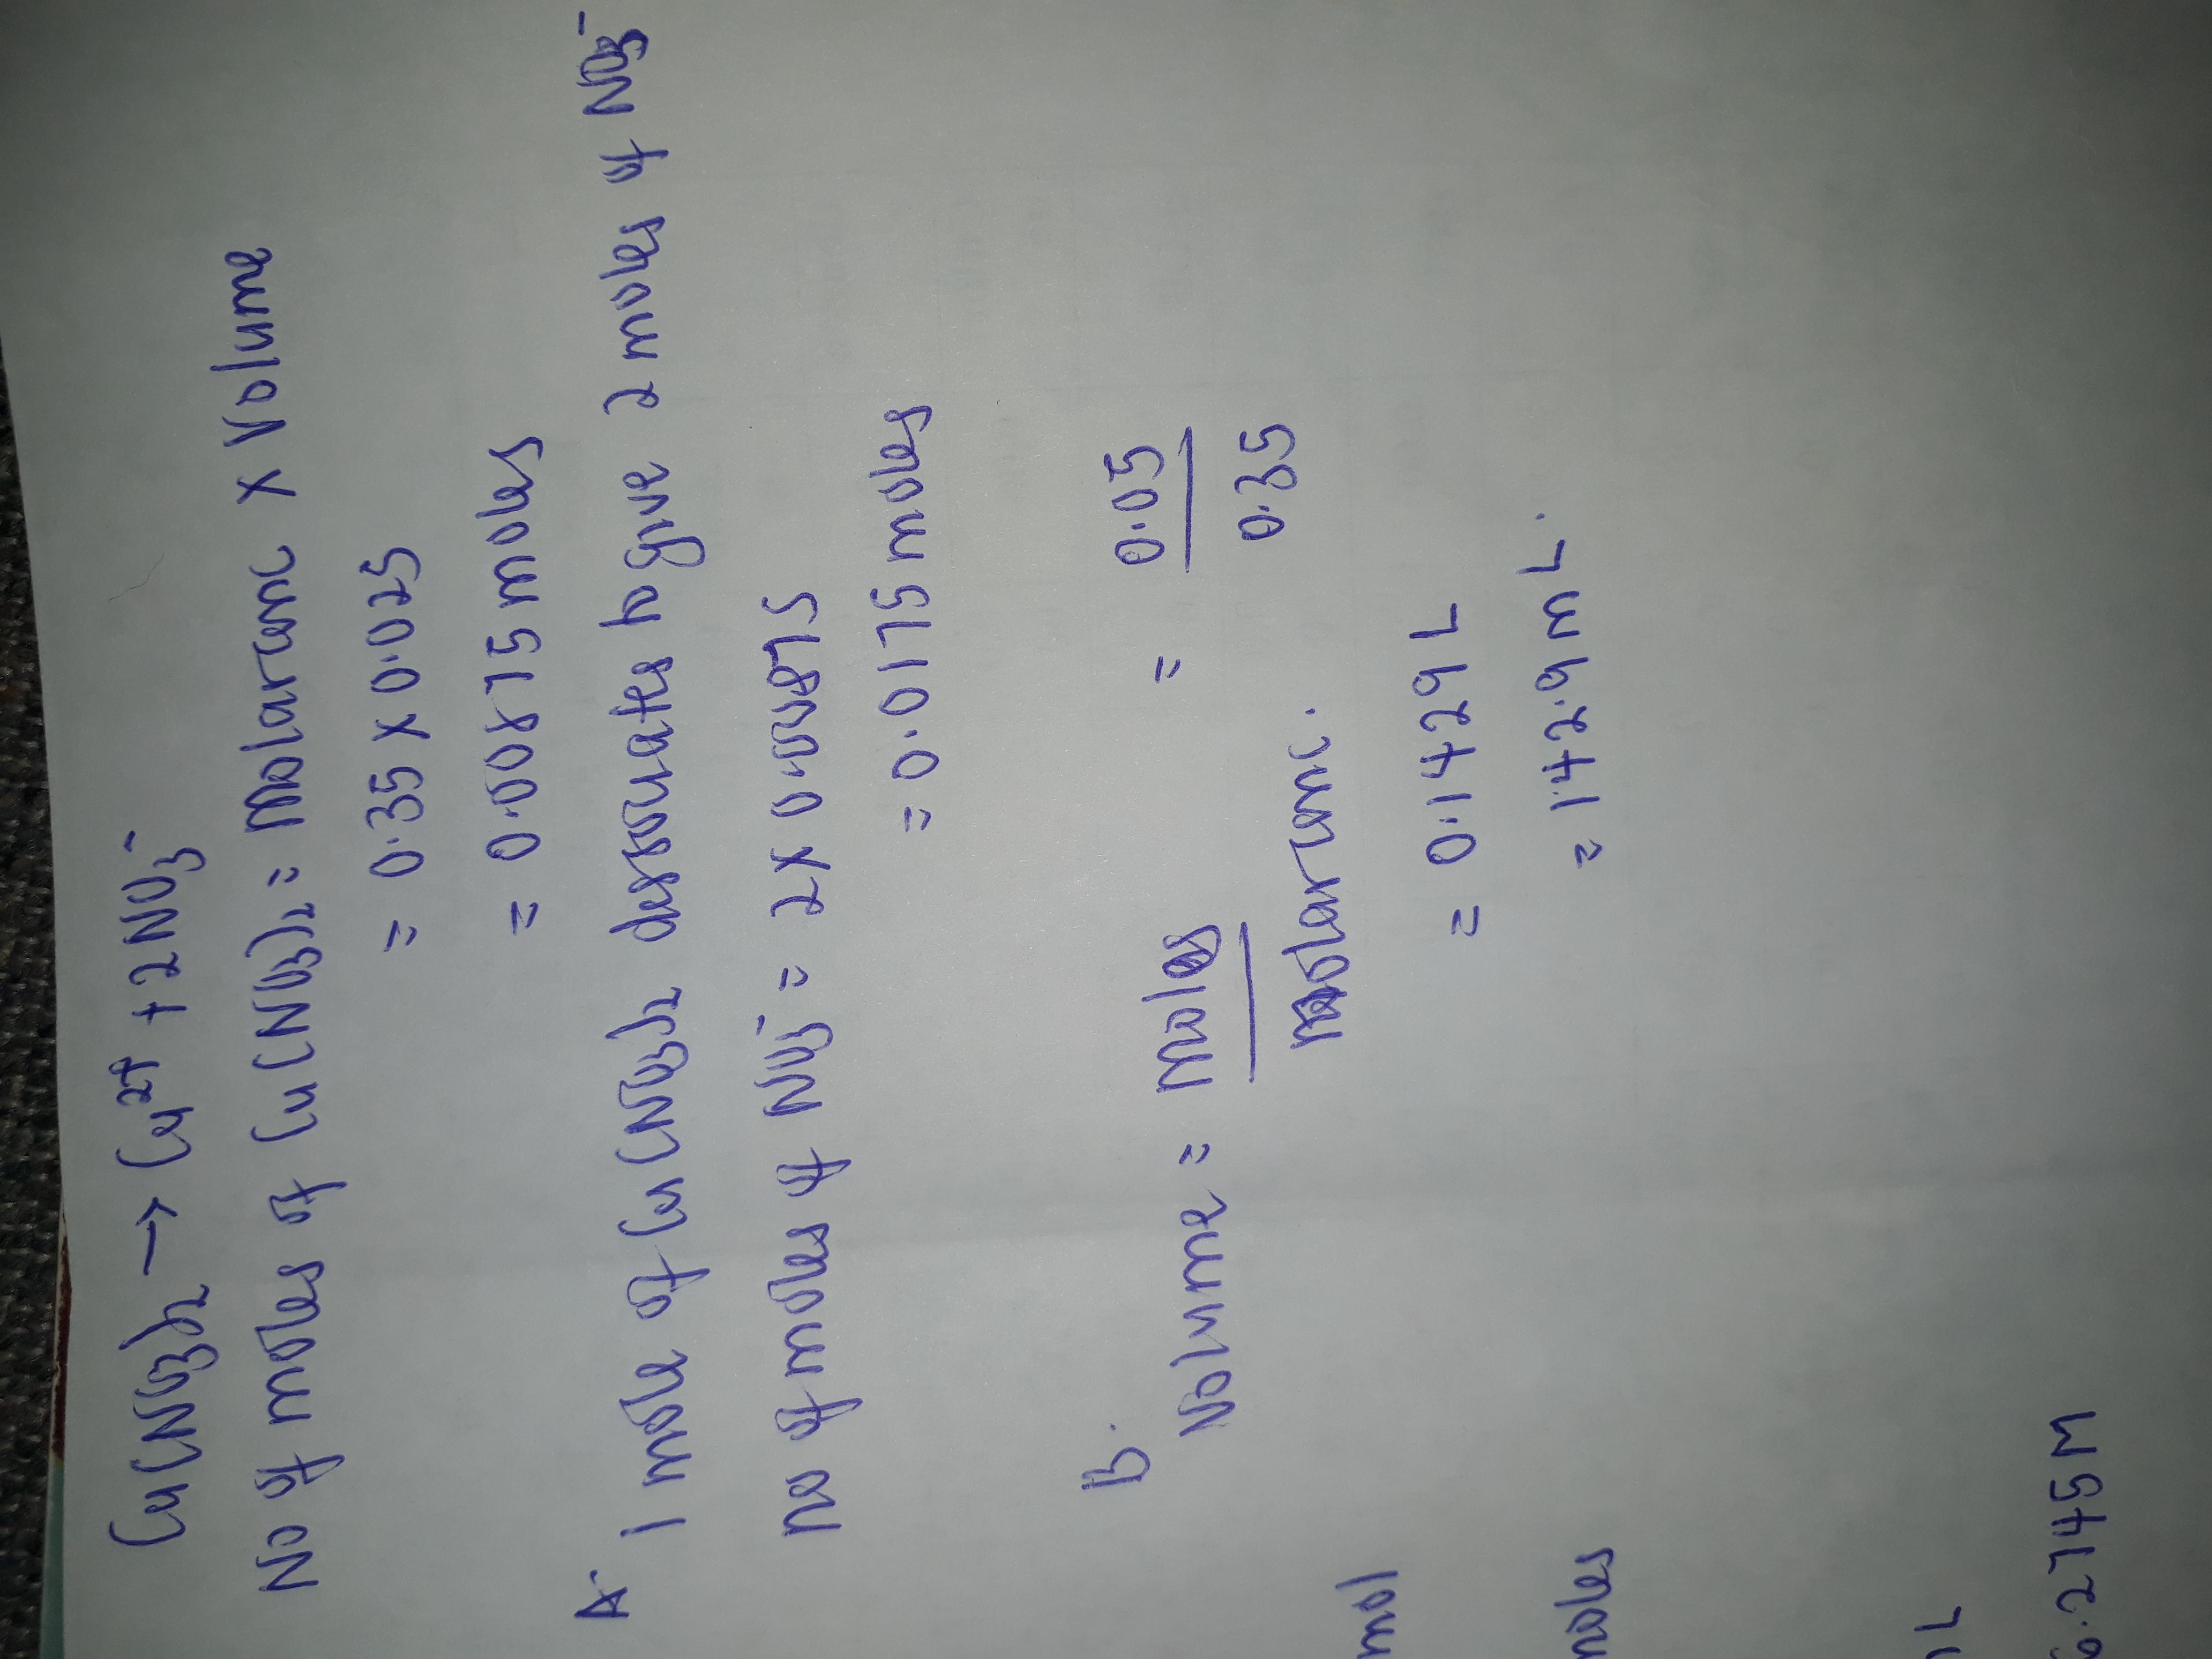 Cu(NO3)2 → Cu2+ + 2NO3-
No of moles of Cu(NO3)2 = Molaramc x Volume
= 0.35 x 0.025
= 0.00875 moles
A. 1 mole of Cu(NO3)2 dissociates to give 2 moles of NO3-
no of moles of NO3- = 2 x 0.00875
= 0.0175 moles
B.
Volume = moles / molaramc. = 0.05 / 0.35
= 0.1429 L
= 142.9 mL.
mol
moles
L
6.2745M